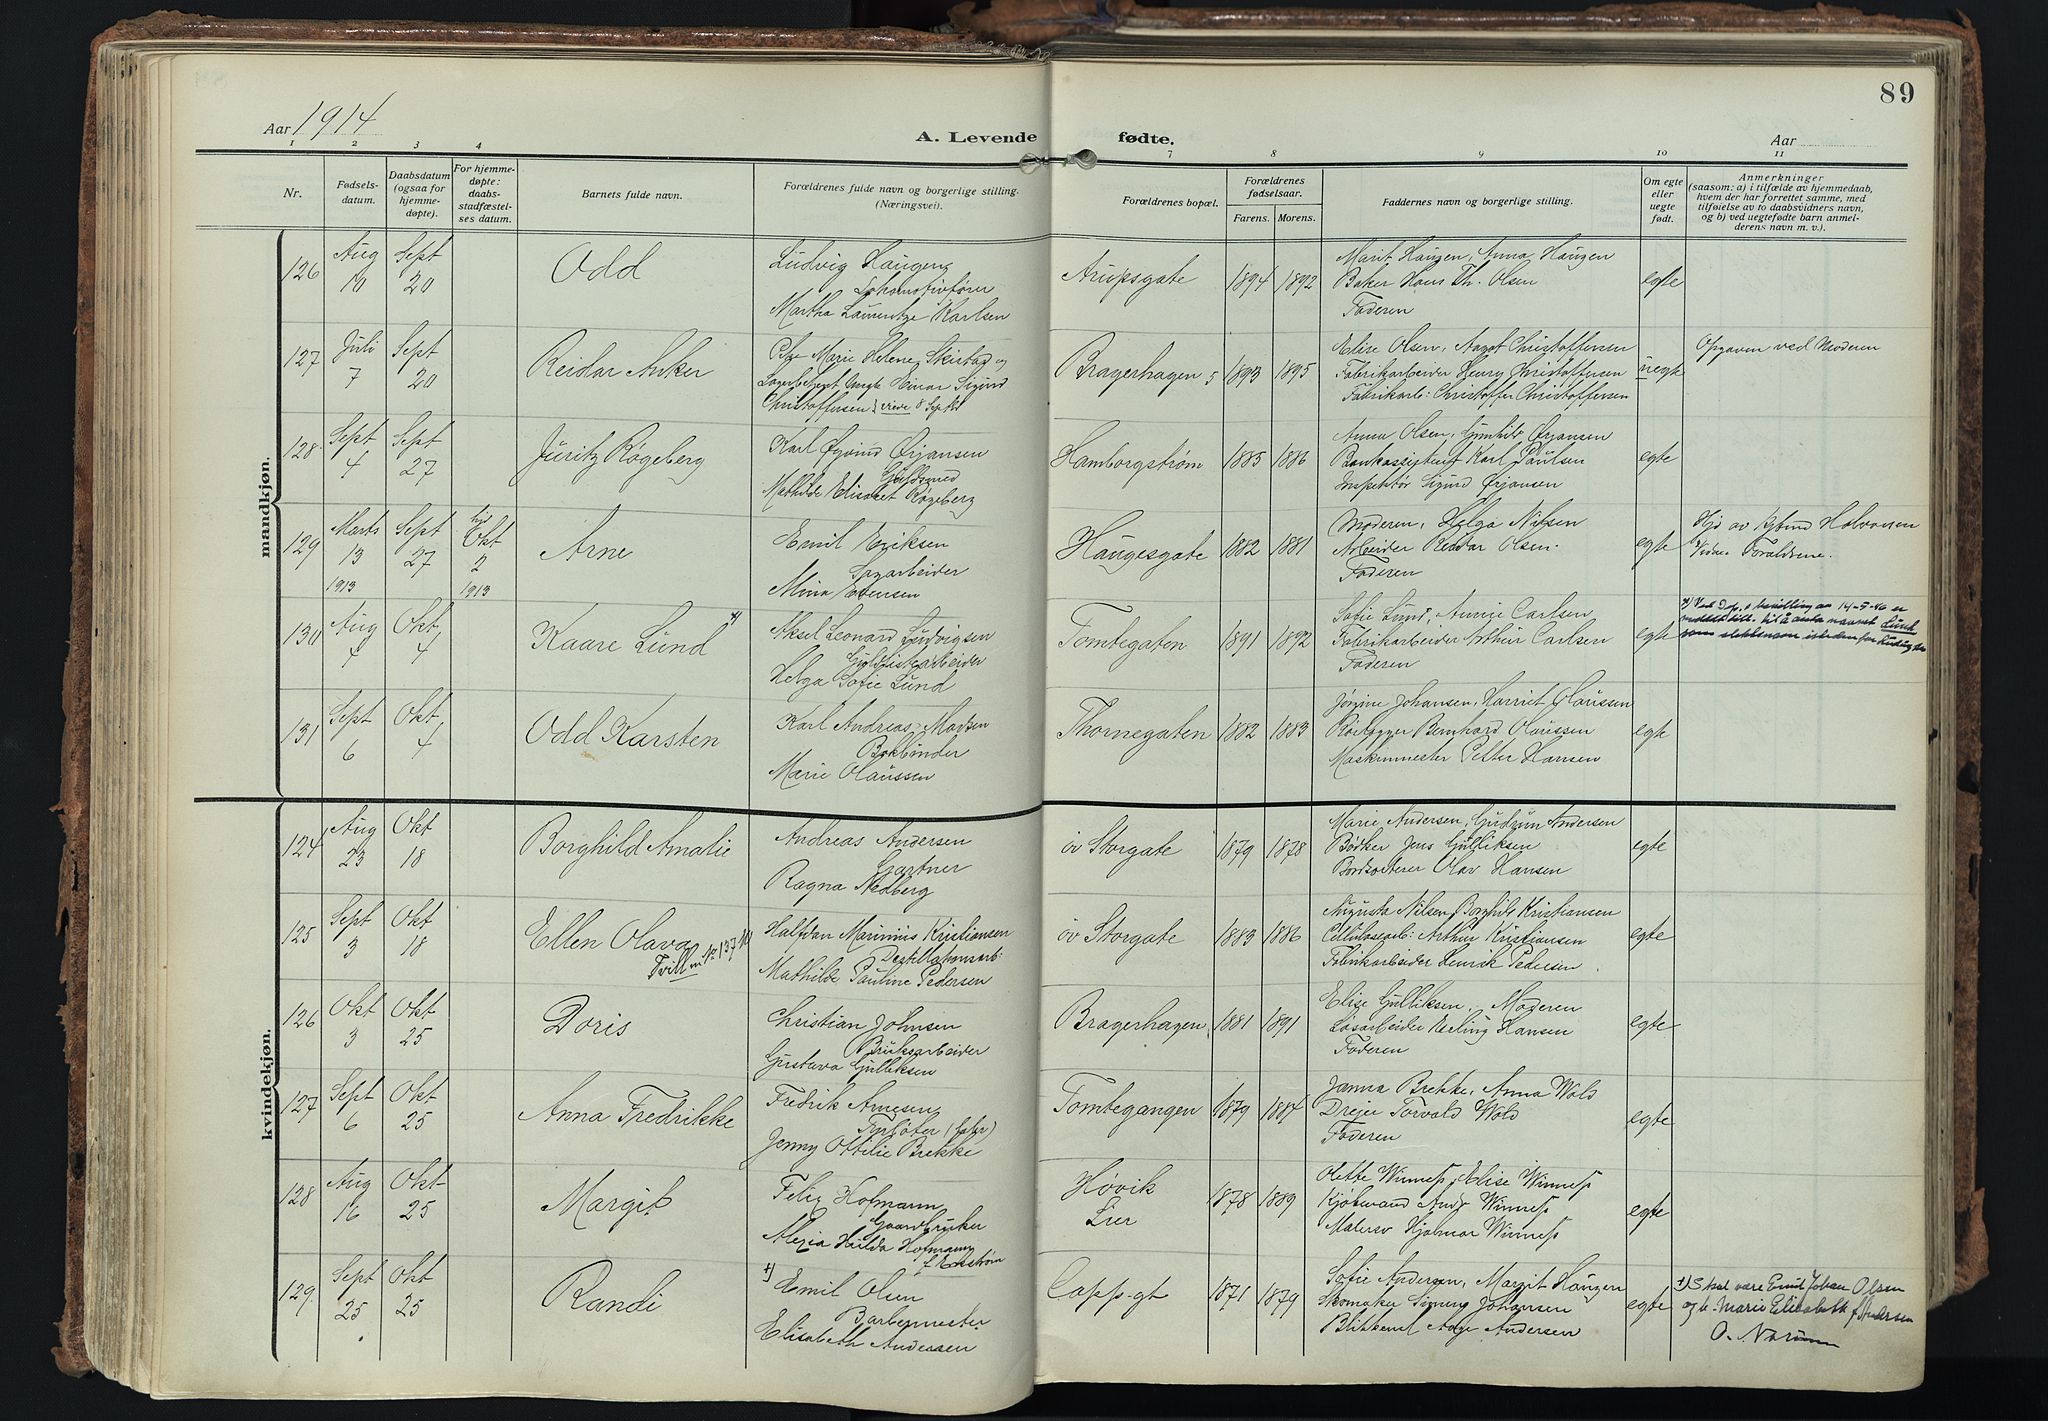 89
Aar 1914
A. Levende fødte.
Aar
1 2 3 4 7 8 9 10 11
Nr.
Fødsels-
datum.
Daabsdatum
(ogsaa for
hjemme-
døpte).
For hjemme-
døpte:
daabs-
stadfæstel-
ses datum.
Barnets fulde navn.
Forældrenes fulde navn og borgerlige stilling.
(Næringsvei).
Forældrenes bopæl.
Forældrenes
fødselsaar.
Farens. Morens.
Faddernes navn og borgerlige stilling.
Om egte
eller
uegte
født.
Anmerkninger
(saasom: a) i tilfælde av hjemmedaab,
hvem der har forrettet samme, med
tilføielse av to daabsvidners navn,
og b) ved uegtefødte barn anmel-
derens navn m. v.).
mandkjøn.
126 Aug 19 Sept 20 Odd
Ludvig Haugen
Lokomotivfører
Martha Karlsen
Arupsgate 1894 1892
Marit Haugen, Anna Haugen
Baker Hans Th. Olsen
Faderen
egte
127 Juli 7 Sept 20 Reidar Anker
Marie Helene Skirstad og
Einar Sigurd
Christoffersen viede 8 Sept
Bragerhagen 5 1893 1895
Elise Olsen, Aagot Christoffersen
Fabrikarbeider Henry Christoffersen
Fabrikarb: Christoffer Christoffersen
uegte
Opgaven ved Moderen
128 Sept 4 Sept 27 Juritz Røgeberg
Karl Øyvind Ørjansen
Guldsmed
Mathilde Elisabet Røgeberg
Hamborgstrøm 1885 1886
Anna Olsen, Gunhild Ørjansen
Bankassistent Karl Paulsen
Inspektør Sigurd Ørjansen
egte
129 Marts 13 1913 Sept 27 Okt 2 1913 Arne
Emil Eriksen
Sagarbeider
Mina Evensen
Haugesgate 1882 1881
Moderen, Helga Nilsen
Arbeider Reidar Olsen
Faderen
egte
Hjd av Halvorsen
Vidner Forældrene.
130 Aug 4 Okt 4 Kaare Lund
Aksel Leonard Ludvigsen
Guldlistearbeider
Helga Sofie Lund
Tomtegaten 1891 1892
Sofie Lund, Carlsen
Fabrikarbeider Arthur Carlsen
Faderen
egte
Ved Dep. s bevilling av 14-5-40 er
meddelt till. til å anta navnet Lund
som slektsnavn istedenfor Ludvigsen
131 Sept 6 Okt 4 Odd Karsten
Karl Andreas Madsen
Bokbinder
Marie Olaussen
Thornegaten 1882 1883
Jørgine Johansen, Harriet Olaussen
Rørlægger Bernhard Olaussen
Maskinmester Petter Hansen
egte
kvindekjøn.
124 Aug 23 Okt 18 Borghild Amalie
Andreas Andersen
Gartner
Ragna Nedberg
øv Storgate 1879 1878
Marie Andersen, Gudrun Andersen
Bødker Jens Gulliksen
Bordsorterer Olav Hansen
egte
125 Sept 3 Okt 18 Ellen Olava
Tvill. m. No 137
Halfdan Marinius Kristiansen
Destillationsarb:
Mathilde Pauline Pedersen
øv Storgate 1883 1886
Augusta Nilsen, Borghild Kristiansen
Cellulosearb: Arthur Kristiansen
Fabrikarbeider Henrik Pedersen
egte
126 Okt 3 Okt 25 Doris
Christian Johnsen
Bruksarbeider
Gustava Gulliksen
Bragerhagen 1881 1891
Elise Gulliksen, Moderen
Løsarbeider Erling Hansen
Faderen
egte
127 Sept 6 Okt 25 Anna Fredrikke
Fredrik Arnesen
Jenny Ottilie Brekke
Tomtegangen 1879 1884
Janna Brekke, Anna Wold
Dreier Torvald Wold
Faderen
egte
128 Aug 16 Okt 25 Margit
Felix Hofmann
Gaardbruker
Alexia Hulda Hofmann
f. Enstrøm
Høvik
Lier
1878 1889
Olette Winness, Elise Winness
Kjøbmand Winness
Malersv Hjalmar Winness
egte
129 Sept 25 Okt 25 Randi
Emil Olsen
Barbermester
Elisabeth Andersen
Capp.gt 1871 1879
Sofie Andersen, Margit Haugen
Skomaker Johansen
Aage Andersen
egte
Skal være Emil Johan Olsen
og h. Marie Elisabeth f. Andersen